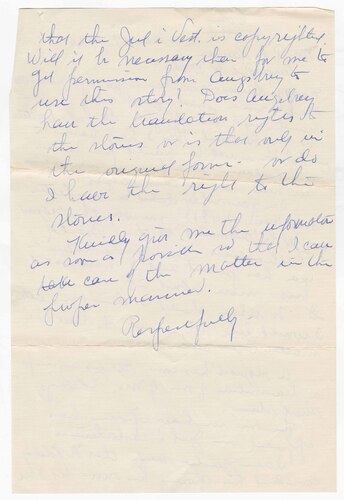 that the Jul i Vest. is copyrighted
Will it be necessary then for me to
get permission from Augsburg to
use this story? Does Augsburg
have the translation rights to
the stories or is that only in
the original form - or do
I have the right to the
stories.
Kindly give me the information
as soon as possible so that I can
take care of the matter in the
proper manner.
Respectfully